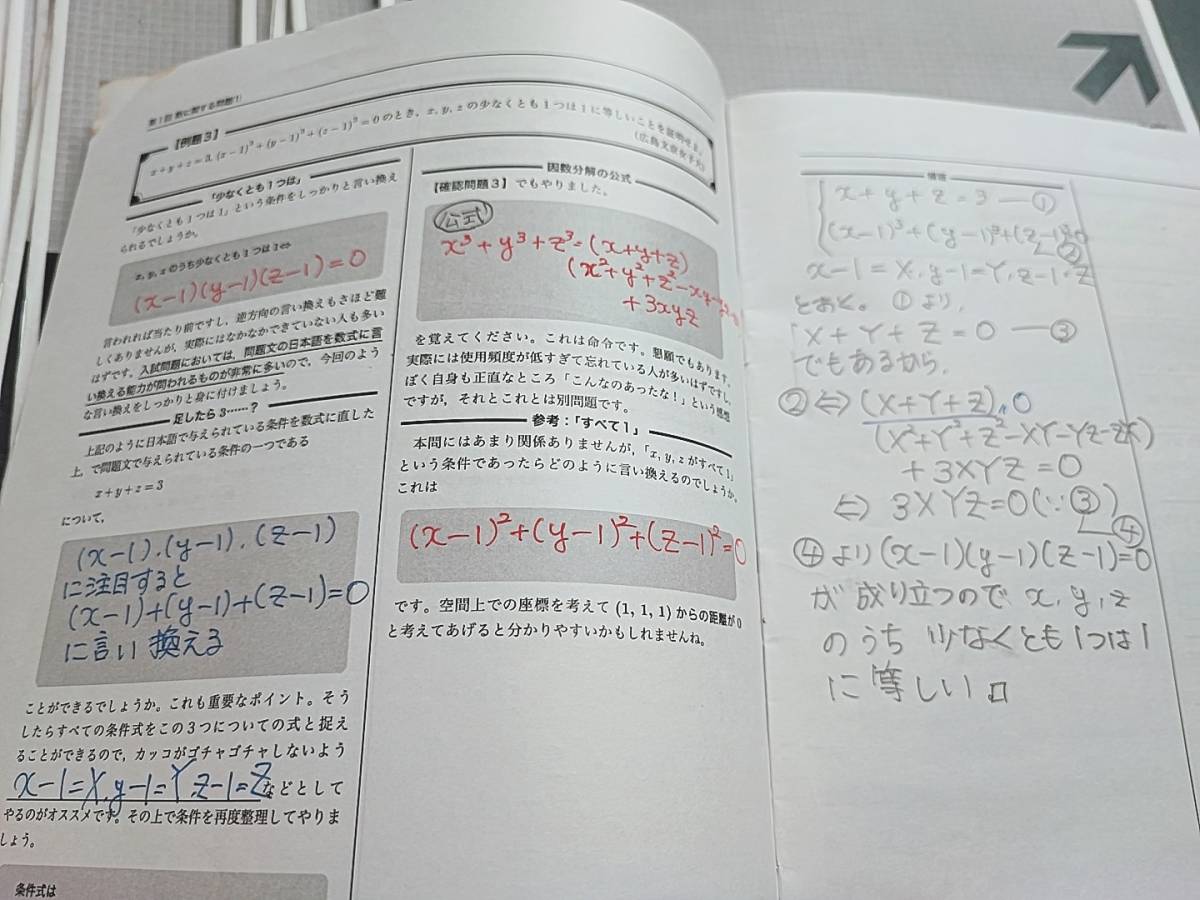 第1回 数に関する問題(1)
【例題3】
x+y+z=3, (x−1)³+(y−1)³+(z−1)³=0のとき, x, y, zの少なくとも1つは1に等しいことを証明せよ。
「少なくとも1つは」
「少なくとも1つは1」という条件をしっかりと言い換え
られるでしょうか。
x, y, zのうち少なくとも1つは1⇔
(x−1)(y−1)(z−1)=0
言われれば当たり前ですし, 逆方向の言い換えもさほど難
しくありませんが, 実際にはなかなかできていない人も多い
はずです。入試問題においては, 問題文の日本語を数式に言
い換える能力が問われるものが非常に多いので, 今回のよう
な言い換えをしっかりと身に付けましょう。
足したら3……?
上記のように日本語で与えられている条件を数式に直した
上, で問題文で与えられている条件の一つである
x+y+z=3
について,
(x−1), (y−1), (z−1)
に注目すると
(x−1)+(y−1)+(z−1)=0
に言い換える
ことができるでしょうか。これも重要なポイント。そう
したらすべての条件式をこの3つについての式と捉え
ることができるので, カッコがゴチャゴチャしないよう
x−1=X, y−1=Y, z−1=Zなどとして
やるのがオススメです。その上で条件を再度整理してやりま
しょう。
条件式は
因数分解の公式
【確認問題3】でもやりました。
公式
x³+y³+z³=(x+y+z)
(x²+y²+z²−xy−
+3xyz
を覚えてください。これは命令です。懇願でもあります。
実際には使用頻度が低すぎて忘れている人が多いはずですし,
ぼく自身も正直なところ「こんなのあったな!」という感想
ですが, それとこれとは別問題です。
参考:「すべて1」
本問にはあまり関係ありませんが,「x, y, zがすべて1」
という条件であったらどのように言い換えるのでしょうか。
これは
(x−1)²+(y−1)²+(z−1)²=0
です。空間上での座標を考えて(1, 1, 1)からの距離が0
と考えてあげると分かりやすいかもしれませんね。
x+y+z=3 ―①
(x−1)³+(y−1)³+(z−1)³=0
②
x−1=X, y−1=Y, z−1=Z
とおく。①より,
X+Y+Z=0 ―③
でもあるから,
②⇔(X+Y+Z) 0
(X²+Y²+Z²−XY−YZ−ZX)
+3XYZ=0
⇔ 3XYZ=0(∵③)
④
④より(x−1)(y−1)(z−1)=0
が成り立つので x, y, z
のうち 少なくとも1つは1
に等しい □